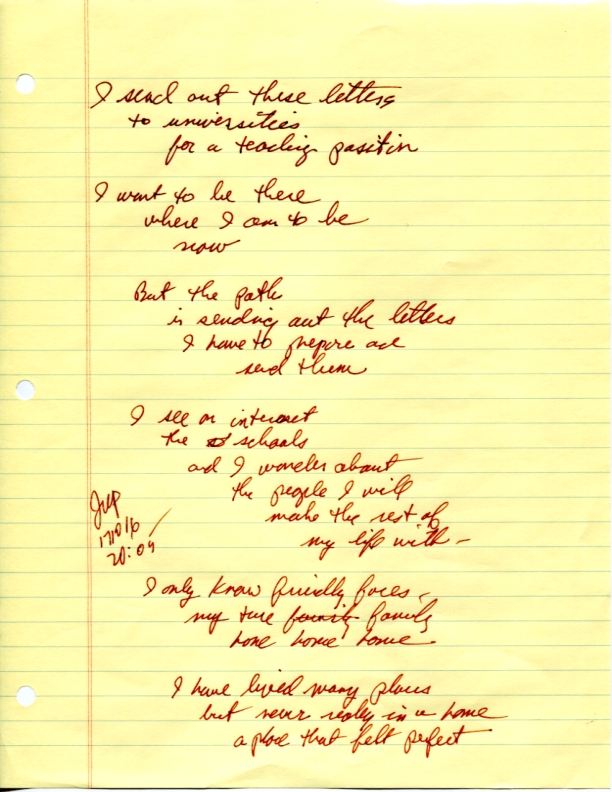 I send out these letters
to universities
for a teaching position
I want to be there
where I am to be
now
But the path
is sending out the letters
I have to prepare and
send them
I see on internet
the schools
and I wonder about
the people I will
make the rest of
my life with –
JWP
171016
20:09
I only know friendly faces –
my true family family
home home home
I have lived many places
but never really in a home
a place that felt perfect